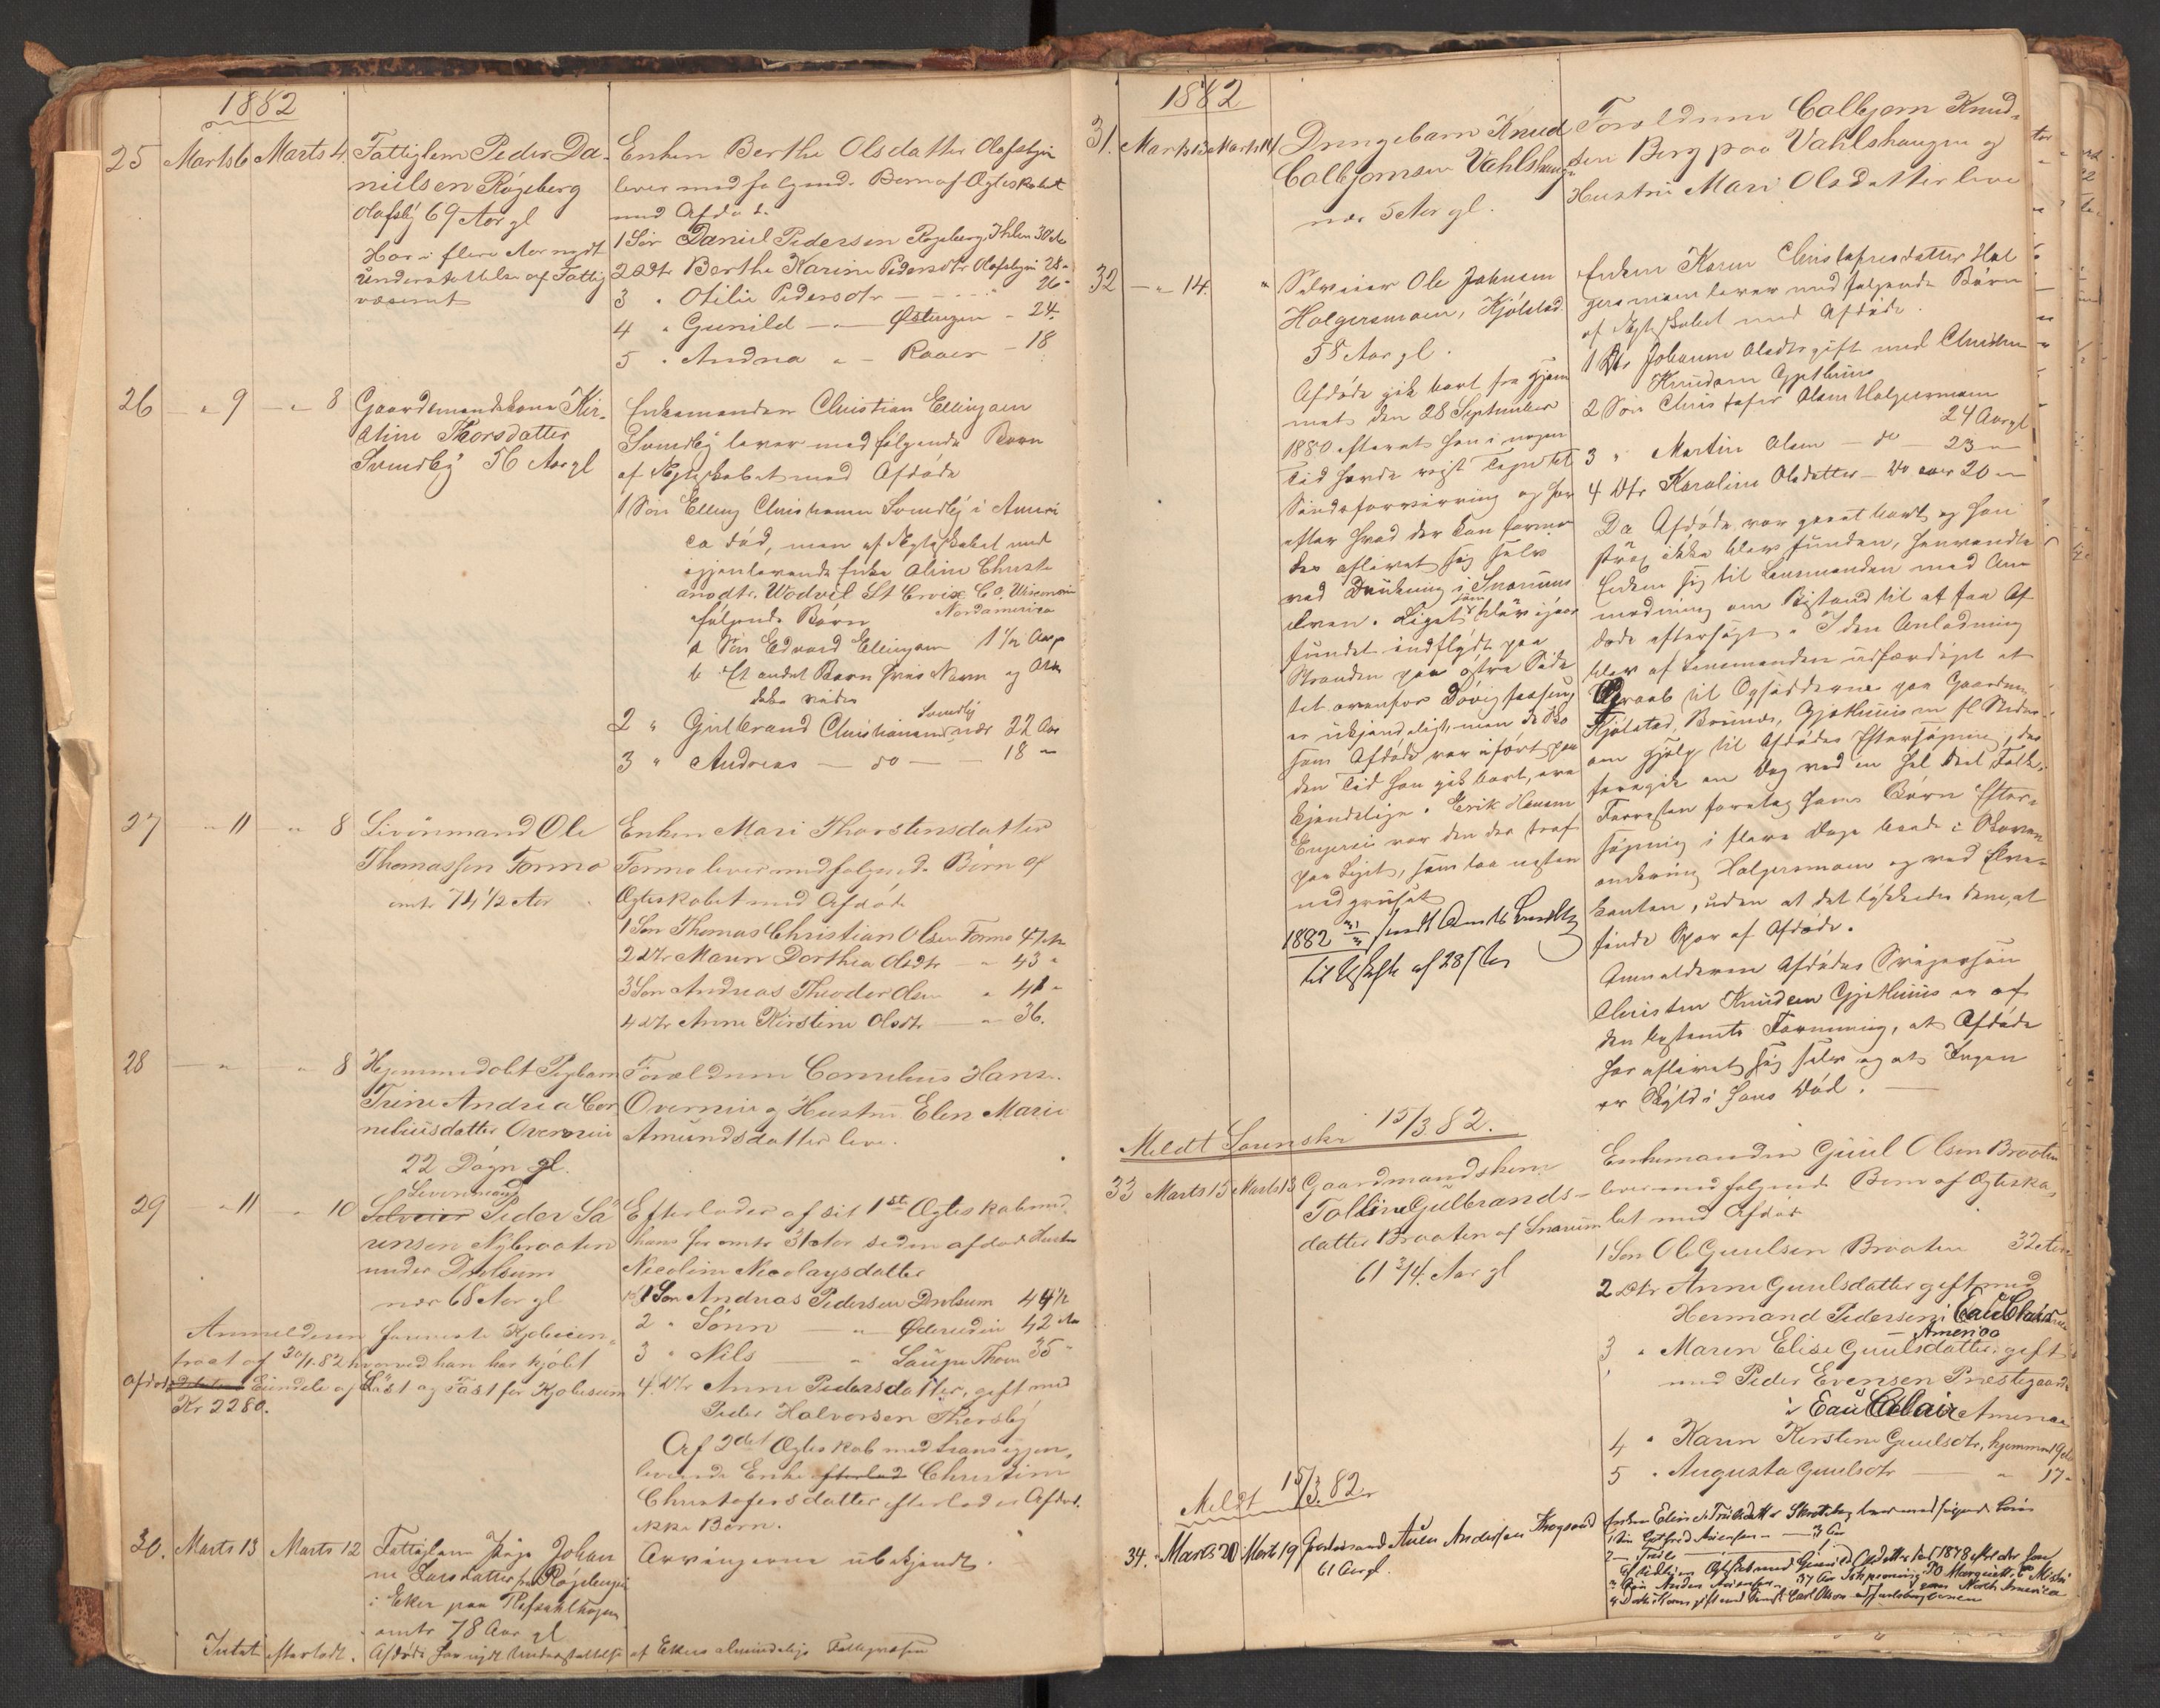 1882
25 Marts 6 Marts 4. Fattiglem Peder Da-
nielsen Røgeberg
Olafsby 69 Aar gl
Har i flere Aar nydt
Understøttelse af Fattig
væsenet
Enken Berthe Olsdatter Olafsbyn
lever med følgende Børn af Ægteskabet
med Afdøde
1 Søn Daniel Pedersen Røgeberg, Ihlen 30 Aar
2 Dtr Berthe Karine Pedersdtr Olafsbyn 28 "
3 " Otilie Pedersdtr — " 26 "
4 " Gunild — " — Østengen - 24.
5 " Andrea " — Raaen - 18
26 — " 9 — " 8 Gaardmandskone Kir-
stine Thorsdatter
Svendby 56 Aar gl
Enkemanden Christian Ellingsen
Svendby lever med følgende Børn
af Ægteskabet med Afdøde
1 Søn Elling Christiansen Svendby i Ameri
ca død, men af Ægteskabet med
igjenlevende Enke Oline Christi
Wodvil St Croix Co.
Nordamerica
følgende Børn
a Søn Edvard Ellingsen 1 1/2 Aar
b Et andet Barn hvis Navn og Alder
ikke vides
2 " Gulbrand Christiansen Svendby nær 22 Aar
3 " Andreas — do — 18 "
27 — " 11 — " 8 Livørnmand Ole
Thomassen Formo
omtr 74 1/2 Aar
Enken Mari Thorstensdatter
Formo lever med følgende Børn af
Ægteskabet med Afdøde
1 Søn Thomas Christian Olsen Formo 47 Aar
2 Dtr Maren Dorthea Olsdtr — " 43 "
3 Søn Andreas Theodor Olsen " 41 "
4 Dtr Anne Kirstine Olsdtr — " 36.
28 — " — " 8 Hjemmedøbt Pigebarn
Trine Andrea Cor
neliusdatter Overnien
22 Døgn gl.
Forældrene Cornelius Hans.
Overnie og Hustru Elen Marie
Amundsdatter leve.
29 — " 11 — " 10 Livørnmand
Selveier Peder Sø
rensen Nybraaten
under Drolsum
nær 68 Aar gl
Efterlader af sit 1ste Ægteskab med
hans for omtr 31 Aar siden afdøde Hustru
Nicoline Nicolaysdatter
1 Søn Andreas Pedersen Drolsum 44 1/2
2 " Sønn — " 42 Aar
3 " Nils — " 35 "
4 Dtr Anne Pedersdatter, gift med
Peder Halvorsen Thorsby
Af 2det Ægteskab med hans igjen-
levende Enke efterlad Christine
Christofersdatter efterlader Afdøde
ikke Børn.
Anmelderen foreviste Kjøbecon-
tract af 30/1 82 hvorved han har kjøbt
Afdødes Eiendele af Løst og Fast for Kjøbesum
Kr 2280.
30. Marts 13 Marts 12 Fattiglem Pige Johan
ne Larsdatter fra Røgeberg
i Eker paa Refsahlhougen
omtr 78 Aar gl
Arvingerne ubekjendt.
Intet efterladt. Afdøde har nydt Understøttelse af Ekers almindelige Fattigvæsen
1882
31. Marts 13 Marts 11 Drengebarn Knud
Colbjørnsen Vahlshaugen
nær 5 Aar gl.
Forældrene Colbjørn Knud-
sen Berg paa Vahlshaugen og
Hustru Mari Olsdatter leve
32 — " 14. " Selveier Ole Johnsen
Holgersmoen, Kjølstad
58 Aar gl.
Afdøde gik bort fra Hjem
met den 28 September
1880 efterat han i nogen
Tid havde vist Tegn til
Sindsforvirring og har
efter hvad der kan formo
des aflivet sig selv
ved Drukning i Snarums
elven. Liget som blev igaar
fundet indflydt paa
Stranden paa østre Side
er ukjendeligt, men de Klæ
som Afdøde var iført paa
den Tid han gik bort, ere
kjendelige. Erik Hansen
var den der traf
paa Liget, som laa næsten
nedgruset
1882
Enken Karen Christofersdatter Hol
gersmoen lever med følgende Børn
af Ægteskabet med Afdøde.
1 Dtr Johanne Olsdtr gift med Christen
Knudsen Gjethuus
2 Søn Christofer Olsen Holgersmoen
24 Aar gl
3 " Martin Olsen — do — 23 "
4 Dtr Karoline Olsdatter — do over 20 "
Da Afdøde var gaaet bort og han
strax ikke blev funden, henvendte
Enken sig til Lensmanden med An
modning om Bistand til at faa Af
døde eftersøgt. I den Anledning
blev af Lensmanden udfærdiget et
Opraab til Opsidderne paa Gaardene
Kjølstad, Gjethuus m fl Steder
om Hjælp til Afdødes Eftersøgning, der
foregik en Dag ved en hel Deel Folk.
Forresten foretog hans Børn Efter-
søgning i flere Dage baade i Skoven
omkring Holgersmoen og ved Elve-
kanten, uden at det lykkedes dem, at
finde Spor af Afdøde.
Anmelderen Afdødes Svigersøn
Christen Knudsen Gjethuus er af
den bestemte Formening, at Afdøde
har aflivet sig selv og at Ingen
er Skyld i hans Død.
Meldt Sorenskr 15/3 82.
33 Marts 15 Marts 13 Gaardmandskone
Golline Gulbrands-
datter Braaten af Snarum
61 3/4 Aar gl
Enkemanden Guul Olsen Braaten
lever med følgende Børn af Ægteska
bet med Afdøde
1 Søn Ole Guulsen Braaten 32 Aar
2 Dtr Anne Guulsdatter gift med
Hermand Pedersen i Eau Claire
America
3 " Maren Elise Guulsdatter, gift
med Peder Evensen Præstegaard
i Eau Claire America
4 " Karen Kirstine Guulsdtr, hjemme 19
5 " Augusta Guulsdtr — " 17 "
Meldt 15/3 82
34. Marts 20 Marts 19 Anders Andersen Krogsrud
61 Aar gl.